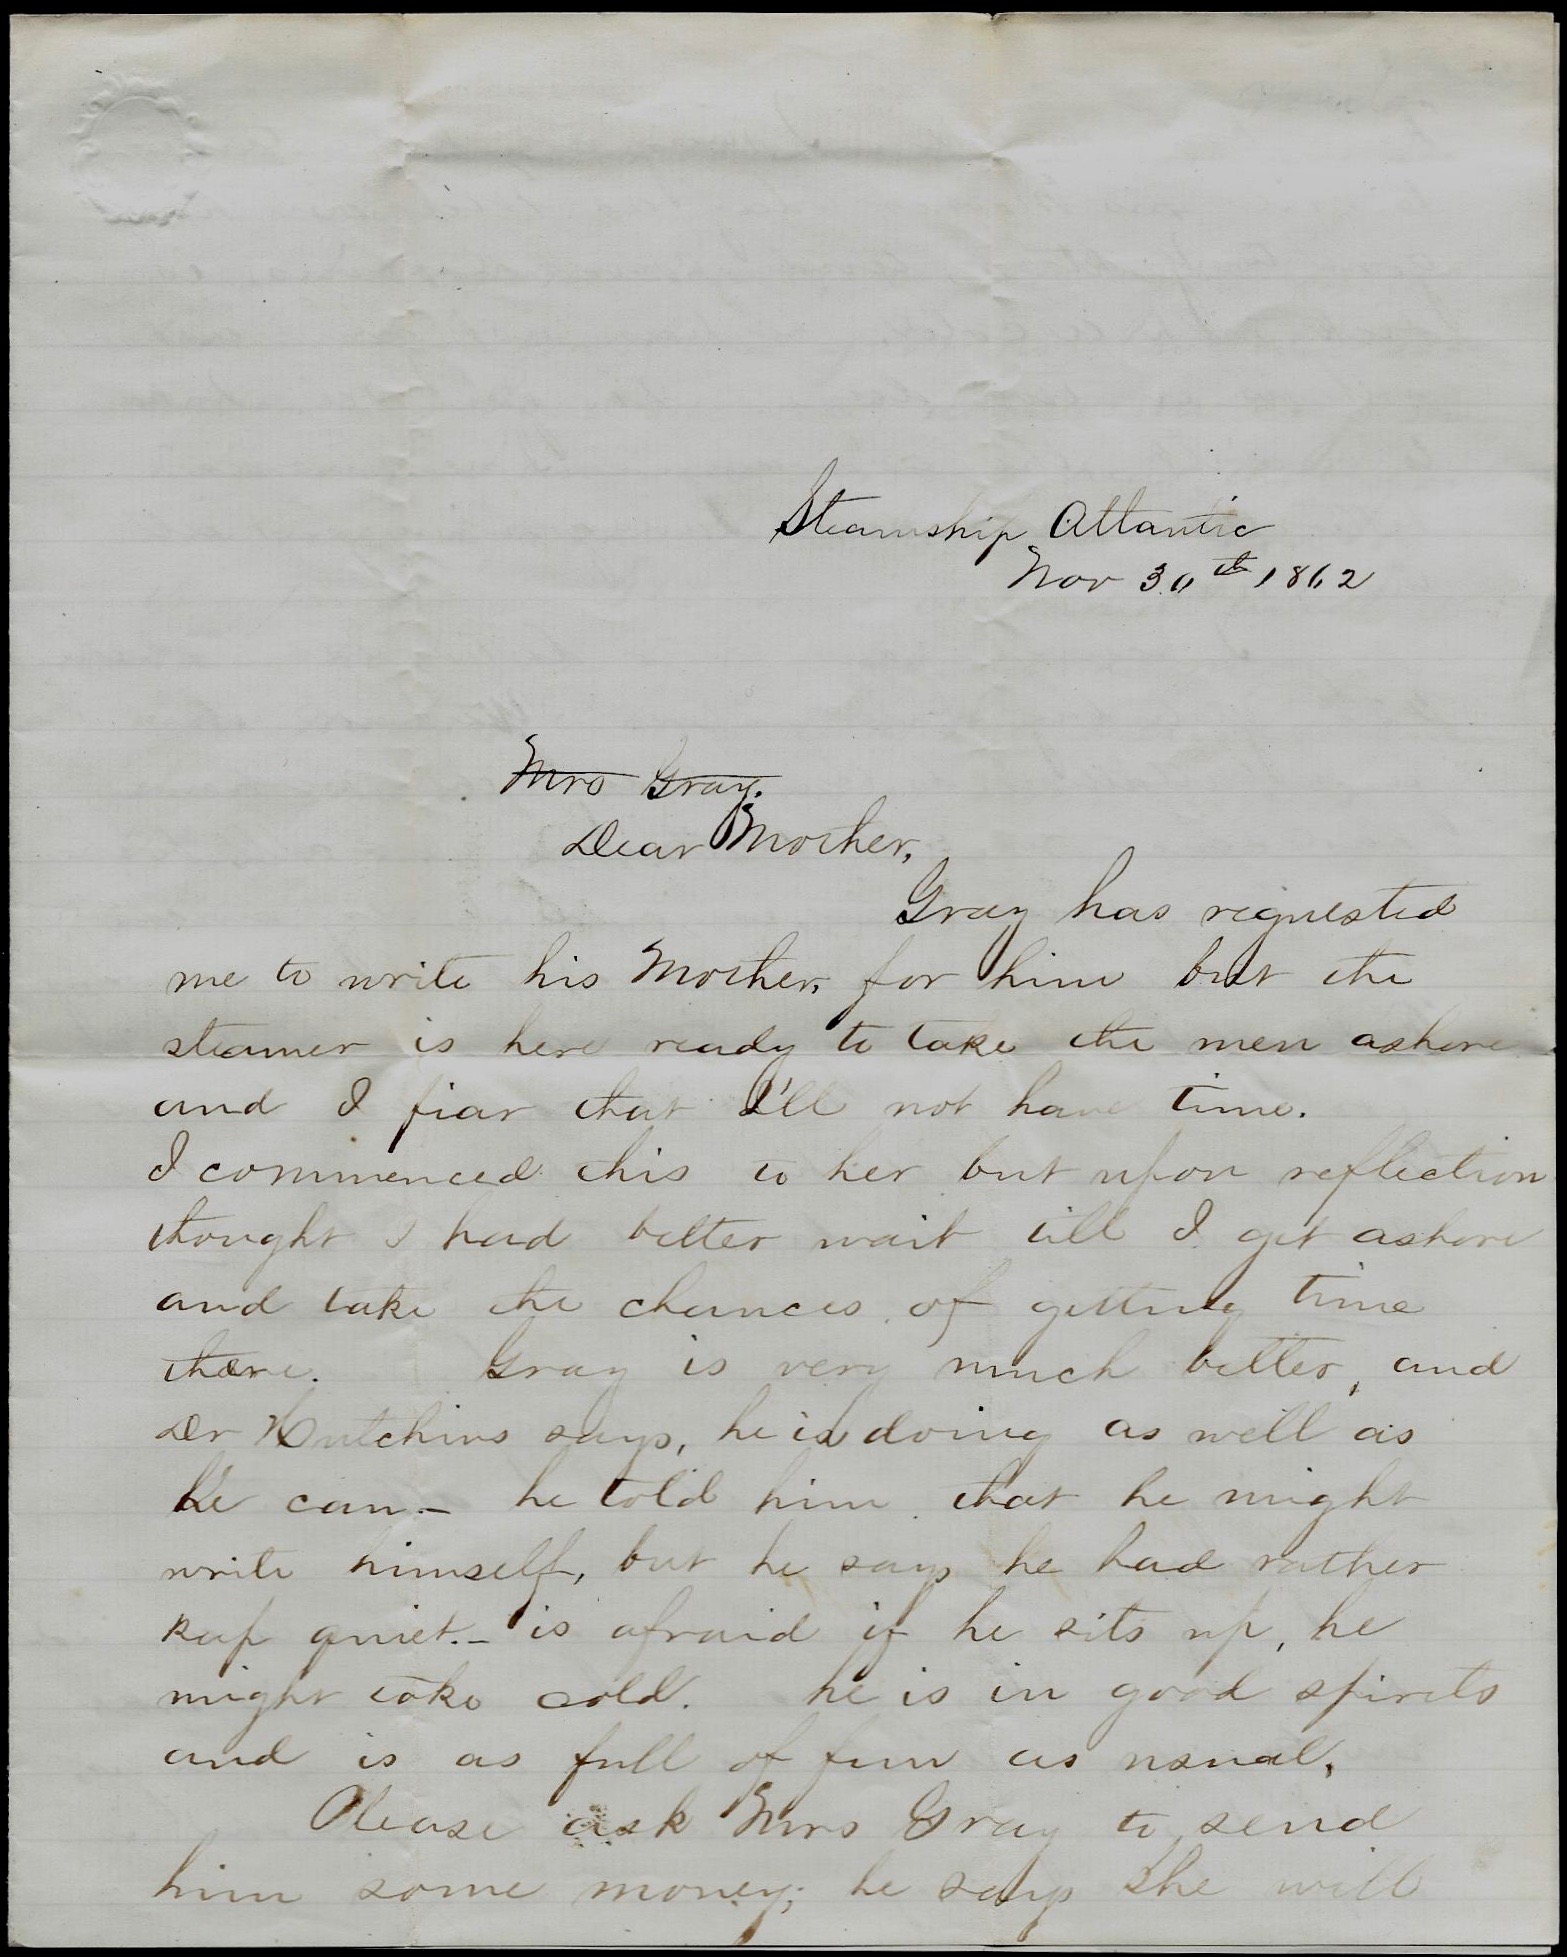 Steamship Atlantic
Nov 30th 1862
Mrs Gray.
Dear Mother,
Gray has requested
me to write his Mother, for him but the
steamer is here ready to take the men ashore
and I fear that I'll not have time.
I commenced this to her but upon reflection
thought I had better wait till I get ashore
and take the chances of getting time
there. Gray is very much better, and
Dr Hutchins says, he is doing as well as
he can - he told him that he might
write himself, but he says he had rather
keep quiet. - is afraid if he sits up, he
might take cold. he is in good spirits
and is as full of fun as usual.
Please ask Mrs Gray to send
him some money; he says she will